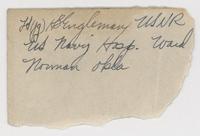 Lt(jg) S Engleman USNR
US Navy Hosp. Ward
Norman Okla